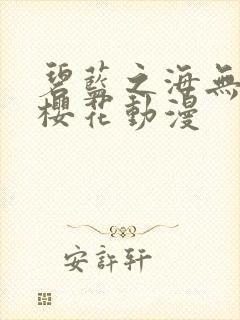 碧藍之海無
櫻花動漫
安許轩